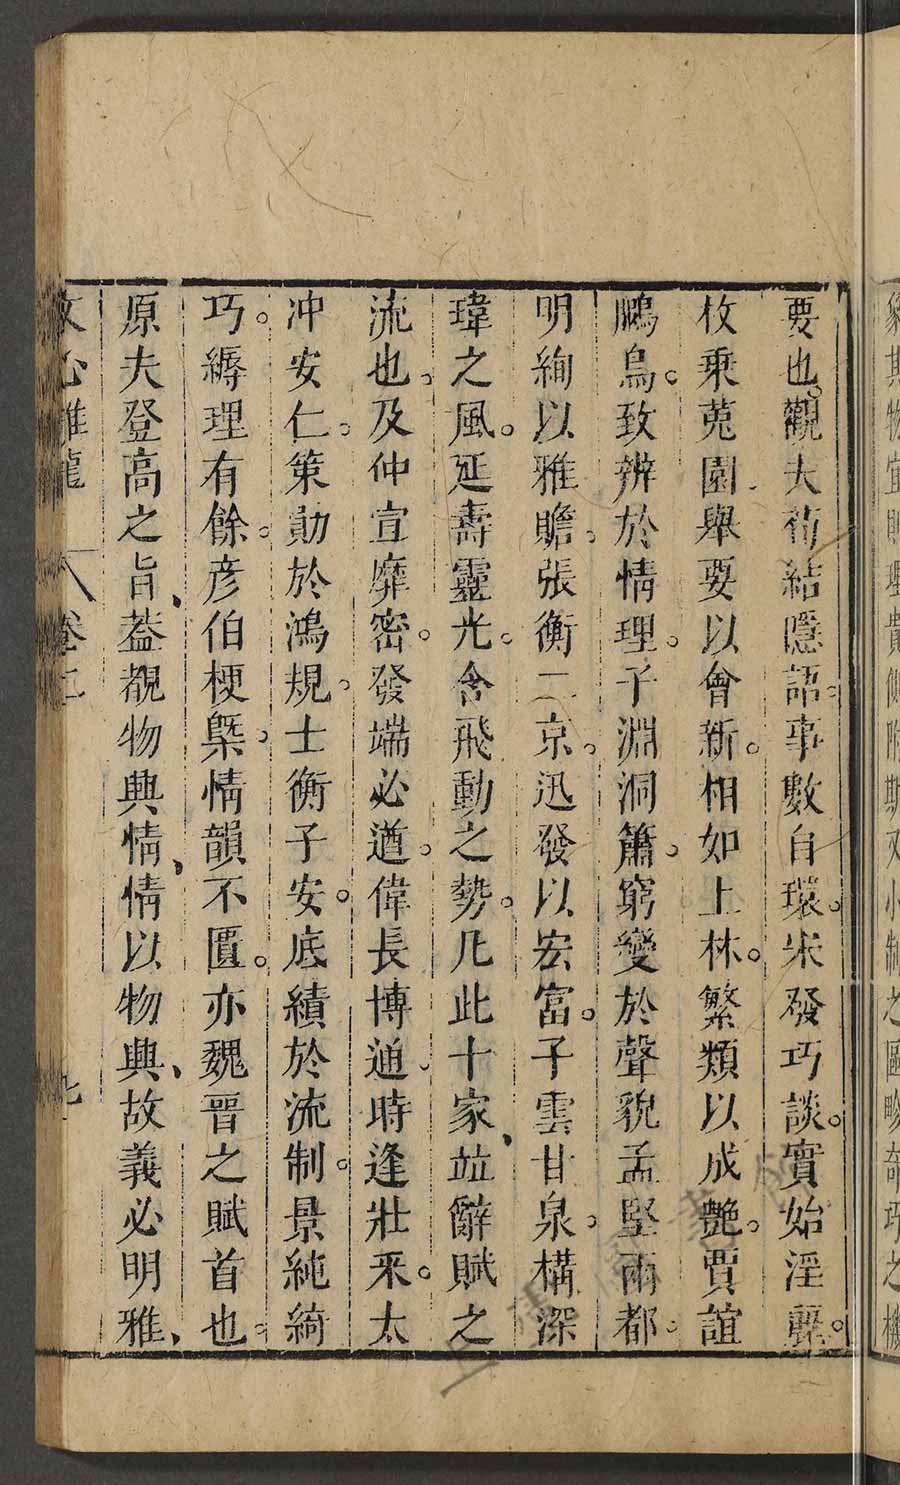 象其物宜則理貴側附斯又小制之區畛奇巧之機
要也。觀夫荀結隱語。事數自環。宋發巧談。實始淫麗。
枚乗菟園舉要以會新。相如上林。繁類以成艷。賈誼
鵩鳥。致辨於情理。子淵洞簫。窮變於聲貌孟堅兩都。
明絢以雅贍。張衡二京。迅發以宏富。子雲甘泉。構深
瑋之風。延壽靈光。含飛動之勢。凡此十家、竝辭賦之
流也。及仲宣靡密。發端必遒。偉長博通。時逢壯采。太
冲安仁。策勛於鴻規。士衡子安。底績於流制。景純綺
巧。縟理有餘。彦伯梗槩。情韻不匱。亦魏晉之賦首也。
原夫登高之旨、葢覩物興情、情以物興、故義必明雅、
文心雕龍 卷二